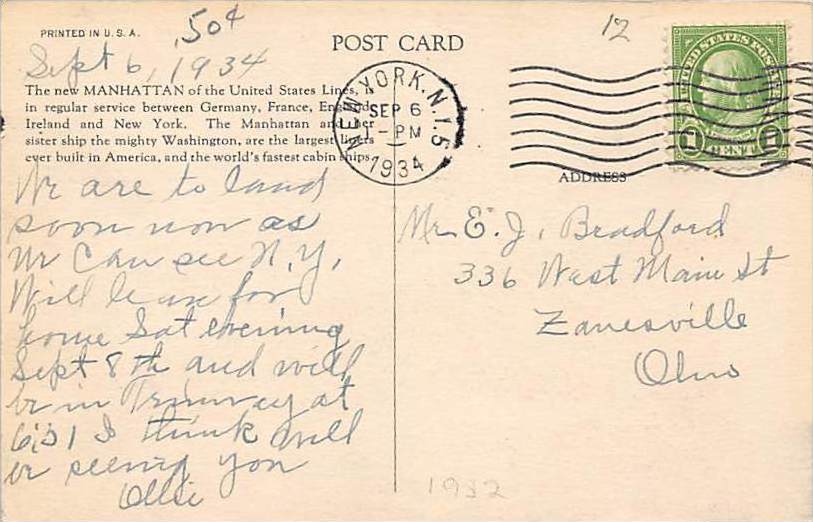 PRINTED IN U. S. A.
.50¢
POST CARD
12
Sept 6, 1934
The new MANHATTAN of the United States Lines, is
in regular service between Germany, France, England,
Ireland and New York. The Manhattan and her
sister ship the mighty Washington, are the largest liners
ever built in America, and the world's fastest cabin ships.
NEW YORK, N.Y. 5
SEP 6
-PM
1934
UNITED STATES POSTAGE
1 CENT 1
ADDRESS
We are to land
soon now as
We Can see N.Y.
Will leave for
home Sat evening
Sept 8th and will
be in at
6:51 I think will
be seeing you
Ollie
Mr. E. J. Bradford
336 West Main St
Zanesville
Ohio
1932